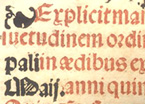 Explicit mai
suetudinem ordin
pali in ædibus ex
Maij. anni quin